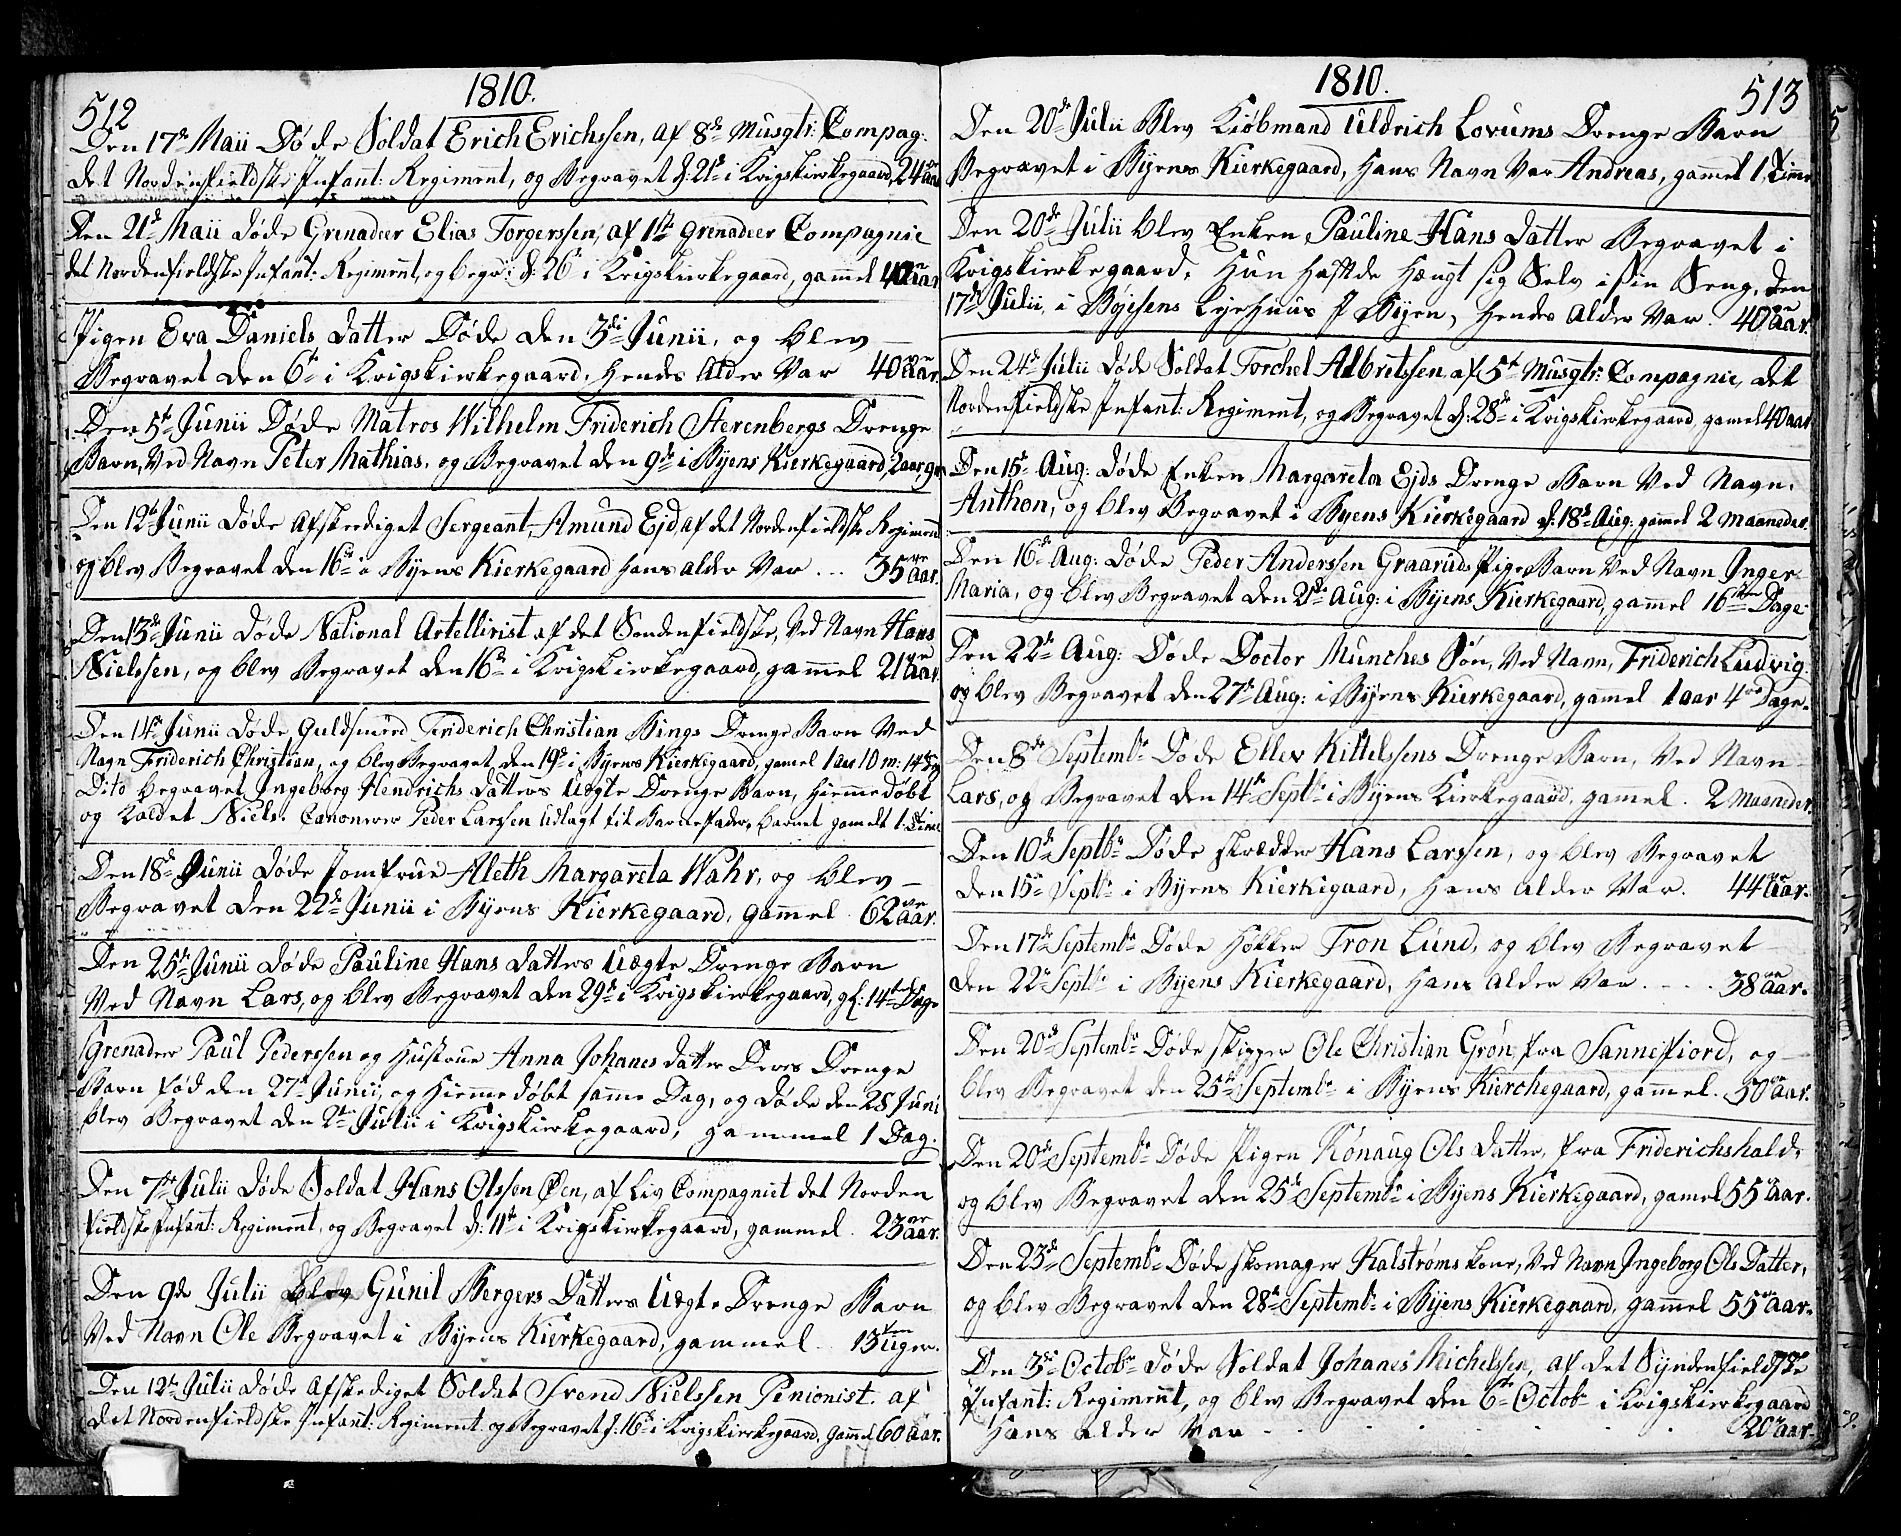 512
1810.
Den 17de Maii Døde Soldat Erich Erichssen, af 8de Musqtr: Compag:
det Nordenfieldske Infant: Regiment, og Begravet d: 21de i Krigskirkegaard, 24 aar
Den 21de Maii døde Grenadeer Elias Torgerssen, af 1ste Grenadeer Compagnie
det Nordenfieldske Infant: Regiment, og begr: d: 26de i Krigskirkegaard, gammel 42 aar
Pigen Eva Daniels datter Døde den 3die Junii, og blev
Begravet den 6te i Krigskirkegaard, hendes Alder Var 40 aar.
Den 5te Junii Døde Matros Wilhelm Friderich Sterenbergs Drenge
Barn, Ved Navn Peter Mathias, og Begravet den 9de i Byens Kierkegaard, 2 aar, 9m
Den 12te Junii døde Afskediget Sergeant, Amund Ejd, af det Nordenfieldske Regiment
og blev Begravet den 16de i Byens Kierkegaard hans alder Var ... 35 aar.
Den 13de Junii døde National Artellirist af det Søndenfieldske, Ved Navn Hans
Nielssen, og blev Begravet den 16de i Krigskirkegaard, gammel 21 aar.
Den 14de Junii døde Guldsmed Friderich Christian Bings Drenge Barn Ved
Navn Friderich Christian, og blev Begravet den 19de i Byens Kierkegaard, gamel 1 aar 10 m: 14 Dg
Dito begravet Ingeborg Hendrichs datters Uægte Drenge Barn, hiemmedøbt
og kaldet Niels. Canonerer Peder Larssen Udlagt til Barnefader, barnet gamelt 1 Time
Den 18de Junii døde Jomfrue Aleth Margareta Wahr, og blev
Begravet den 22de Junii i Byens Kierkegaard, gammel 62 aar.
Den 25de Junii døde Pauline Hans datters Uægte Drenge Barn
Ved Navn Lars, og blev Begravet den 29de i Krigskirkegaard, gl: 14 Dage
Grenadeer Paul Pederssen og Hustrue Anna Johanes datter Deres Drenge
Barn fød den 27de Junii, og Hiemmedøbt samme Dag, og døde den 28 Juni
blev Begravet den 2den Julii i Krigskirkegaard, gammel 1 Dag.
Den 7de Julii døde Soldat Hans Olssen Øen, af Liv Compagniet det Norden
fieldske Infant: Regiment, og Begravet d: 11te i Krigskirkegaard, gammel 23 aar.
Den 9de Julii blev Gunil Bergers Datters Uægte Drenge Barn
Ved Navn Ole Begravet i Byens Kierkegaard, gammel 13 uger.
Den 12te Julii døde Afskediget Soldat Svend Nielssen Penionist. af
det Nordenfieldske Infant: Regiment og Begravet d: 16de i Krigskirkegaard, gammel 60 aar.
1810.
513
Den 20de Julii Blev Kiøbmand Uldrich Lorums Drenge Barn
Begravet i Byens Kierkegaard, hans Navn Var Andreas, gammel 1 Time
Den 20de Julii blev Enken Pauline Hans datter Begravet i
Krigskirkegaard, hun hafde hængt sig Selv i sin Seng, den
17de Julii, i Byens i Byen, hendes Alder Var. 40 aar.
Den 24de Julii døde Soldat Torchel Albretssen, af 5te Musqtr: Compagnie, det
Nordenfieldske Infant: Regiment, og Begravet d: 28de i Krigskirkegaard, gamel 40 aar
Den 15de Aug: døde Enken Margareta Ejds Drenge Barn Ved Navn,
Anthon, og blev Begravet i Byens Kierkegaard d: 18de Aug: gammel 2 Maaneder.
Den 16de Aug: døde Peder Anderssen Graaruds Pige Barn Ved Navn Inger
Maria, og blev Begravet den 21de Aug: i Byens Kierkegaard, gammel 16 Dage.
Den 22de Aug: Døde Doctor Munches Søn, Ved Navn, Friderich Ludvig
og blev Begravet den 27de Aug: i Byens Kierkegaard, gammel 1 aar 4 Dage.
Den 8de Septembr Døde Ellev Kittelssens Drenge Barn, Ved Navn
Lars, og Begravet den 14de Septbr i Byens Kierkegaard, gammel. 2 Maaneder.
Den 10de Septbr Døde Skrædder Hans Larssen, og blev Begravet
den 15de Septbr i Byens Kierkegaard, hans alder Var. 44 aar.
Den 17de Septembr Døde Høkker Tron Lund, og blev Begravet
den 22de Septbr i Byens Kierkegaard, hans alder Var . . . 38 aar.
Den 20de Septembr Døde Skipper Ole Christian Grøn, fra Sannefiord, og
blev Begravet den 25de Septembr i Byens Kierchegaard, gammel. 50 aar.
Den 20de Septembr Døde Pigen Rønaug Ols datter, fra Friderichshald,
og blev Begravet den 25de Septembr i Byens Kierkegaard, gamel 55 aar.
Den 23de Septembr Døde Skomager Kalstrøms kone, Ved Navn Ingeborg Ols Datter,
og blev Begravet den 28de Septembr i Byens Kierkegaard, gammel 55 aar.
Den 3die Octobr døde Soldat Johanes Michelssen, af det Syndenfieldske
Infant: Regiment, og blev Begravet den 6te Octobr i Krigskirkegaard
Hans alder Var . . . . 20 aar.